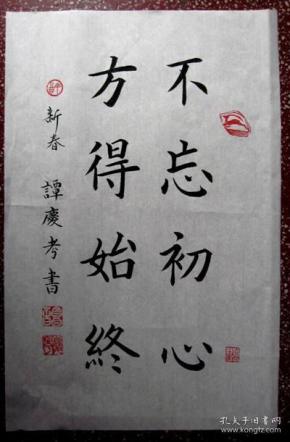 不忘初心
方得始終
新春 譚慶孝書
孔夫子旧书网
www.kongfz.com